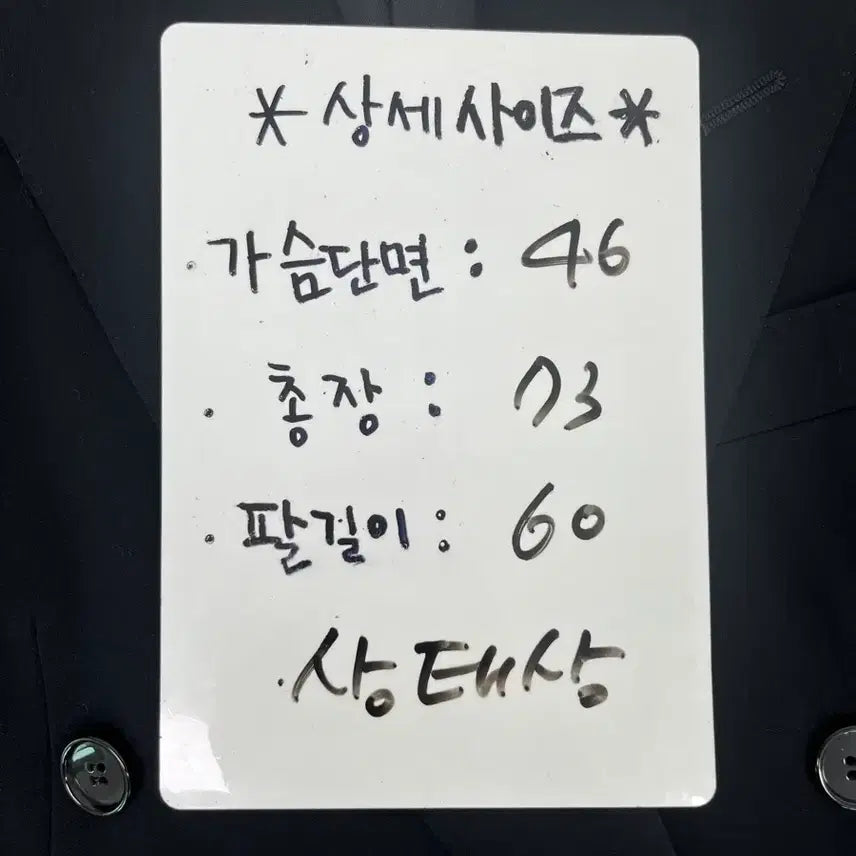 *상세사이즈*
·가슴단면 : 46
· 총장 : 73
· 팔길이 : 60
·상태상